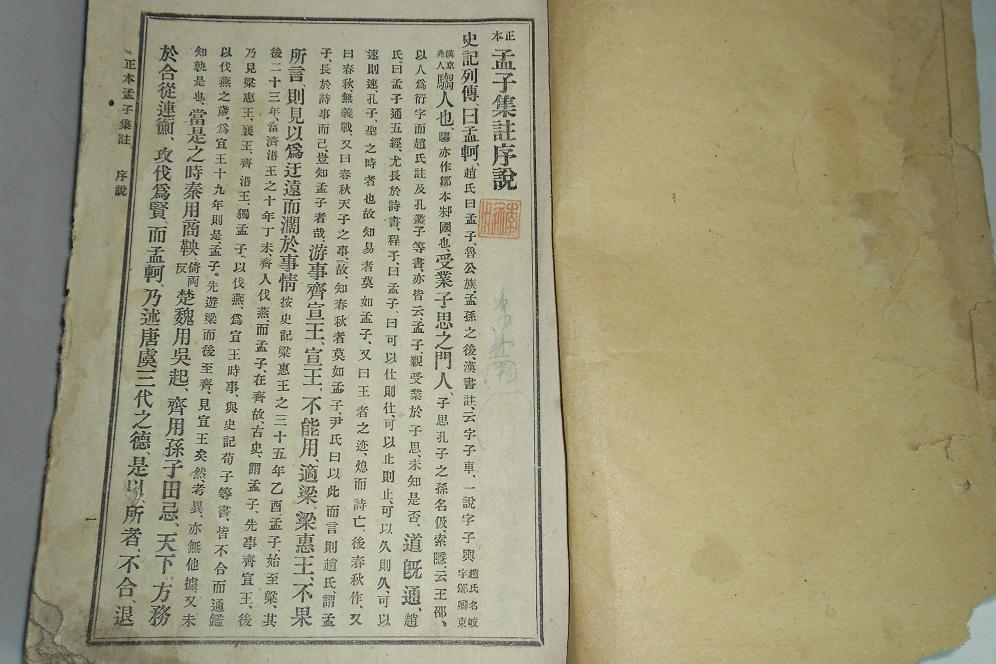 正本孟子集註序說
史記列傳、曰孟軻、趙氏曰孟子魯公族、孟孫之後、漢書註、云字子車、一說字子輿、趙氏名岐字邠卿東
漢京兆人騶人也、騶亦作鄒本邾國也、受業子思之門人、子思孔子之孫名伋、索隱、云王邵、
以人爲衍字而趙氏註及孔叢子等書、亦皆云、孟子、親受業於子思、未知是否、道旣通、趙
氏曰孟子通五經尤長於詩書、程子曰孟子、曰可以仕則仕、可以止則止、可以久則久、可以
速則速、孔子、聖之時者也故知易者莫如孟子、又曰王者之迹、熄而詩亡、後春秋作、又
曰春秋無義戰、又曰春秋天子之事、故、知春秋者莫如孟子、尹氏曰以此而言則趙氏、謂孟
子、長於詩事而已、豈知孟子者哉、游事齊宣王、宣王、不能用、適梁、梁惠王、不果
所言、則見以爲迂遠而濶於事情按史記梁惠王之三十五年乙酉孟子、始至梁、其
後二十三年、當濟湣王之十年丁未、齊人伐燕、而孟子、在齊故、古史、謂孟子、先事齊宣王、後
乃見梁惠王、襄王、齊湣王、獨孟子、以伐燕、爲宣王時事、與史記荀子等書、皆不合而通鑑
以伐燕之歲、爲宣王十九年則是、孟子。先遊梁而後至齊、見宣王矣然、考異、亦無他據、又未
知孰是也、當是之時秦用商鞅倚兩反楚魏用吳起、齊用孫子田忌、天下、方務
於合從連衡、攻伐爲賢、而孟軻、乃述唐虞三代之德、是以、所者、不合、退
正本孟子集註 序說 一